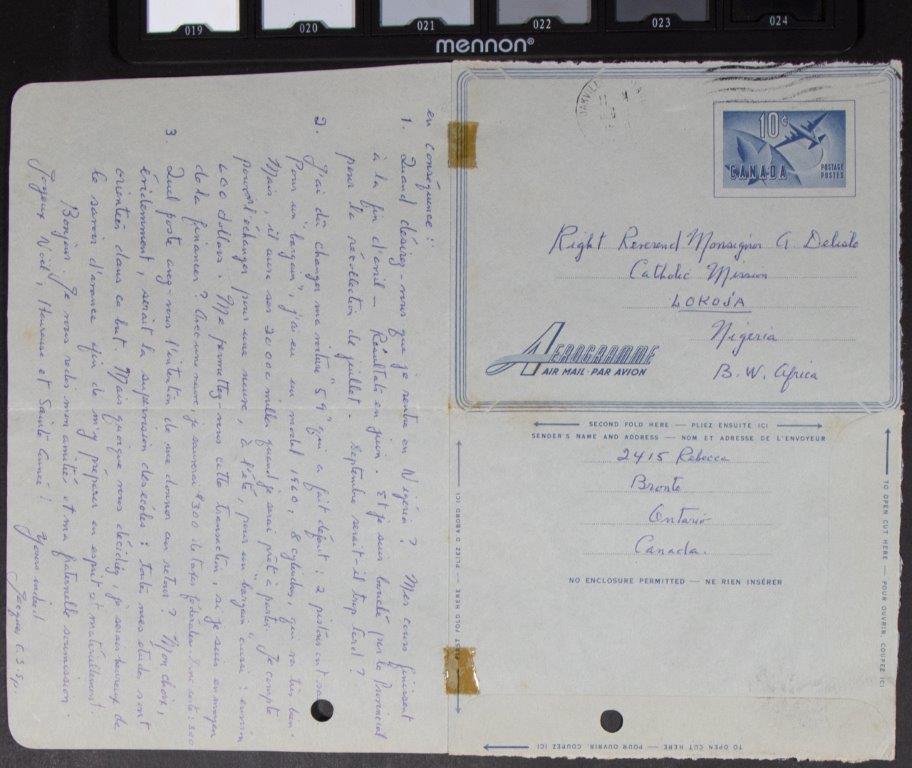 019 020 021 022 023 024
mennon®
OAKVILLE
10¢
CANADA
POSTAGE
POSTES
Right Reverend Monsignor A Delisle
Catholic Mission
LOKOJA
Nigeria
B. W. Africa
AEROGRAMME
AIR MAIL · PAR AVION
SECOND FOLD HERE — PLIEZ ENSUITE ICI
SENDER'S NAME AND ADDRESS — NOM ET ADRESSE DE L'ENVOYEUR
2415 Rebecca
Bronte
Ontario
Canada.
NO ENCLOSURE PERMITTED — NE RIEN INSÉRER
TO OPEN CUT HERE — POUR OUVRIR, COUPEZ ICI
FIRST FOLD HERE — PLIEZ D'ABORD ICI
TO OPEN CUT HERE — POUR OUVRIR, COUPEZ ICI
en conséquence :
1. Quand désirez-vous que je rentre en Nigéria ? Mes cours finissent
à la fin d'avril — Résultats en juin. Et je suis invité par le Provincial
pour la récollection de juillet. Septembre serait-il trop tard ?
2. J'ai dû changer ma voiture "59" qui a fait défaut : 2 pistons
Pour un "bargain", j'ai eu un model 1960, 8 cylindres, qui va très bien.
Mais, il aura ses 20000 milles quand je serai prêt à partir. Je compte
pouvoir échanger pour une neuve, à l'été, pour un "bargain" aussi : environ
600 dollars. Me permettez-vous cette transaction, si je suis en moyen
de la financer ? Avec une neuve, je sauverai $300 de taxe fédérale
3. Quel poste avez-vous l'intention de me donner au retour ? Mon choix,
évidemment, serait la supervision des écoles : toutes mes études sont
orientées dans ce but. Mais quoique vous décidiez, je serais heureux de
le savoir d'avance afin de m'y préparer en esprit et matériellement.
Bonjour. Je vous redis mon amitié et ma fraternelle soumission.
Joyeux Noël, Heureuse et Sainte Année ! Yours indeed
Jacques C.S.Sp.